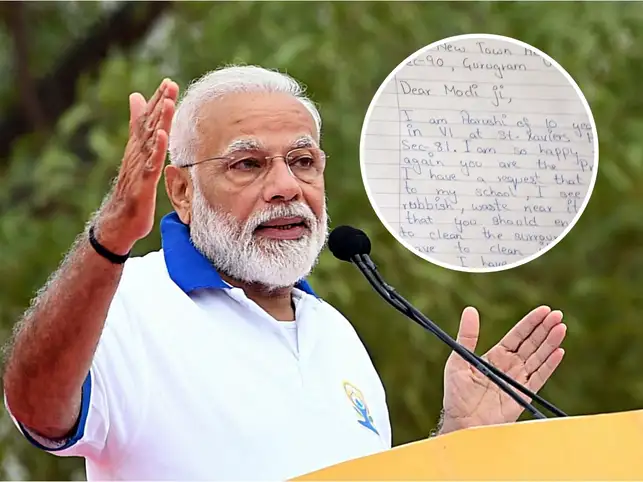 New Town
Sec-90, Gurugram
Dear Modi ji,
I am Aarushi of 10
in VI at St. Xaviers
Sec-81. I am so happy
again you are the
I have a request that
to my school, I see
rubbish, waste near
that you should
to clean the
to clean
I have